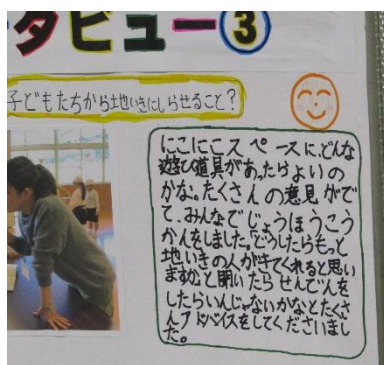 タビュー③
子どもたちから地いきにしらせること?
にこにこスペースに、どんな
遊び道具があったらよいの
かな。たくさんの意見がで
て、みんなでじょうほうこう
かんをしました。どうしたらもっと
地いきの人がキてくれると思い
ますか。と聞いたらせんでんを
したらいいんじゃないかなとたくさ
んアドバイスをしてくださいまし
た。